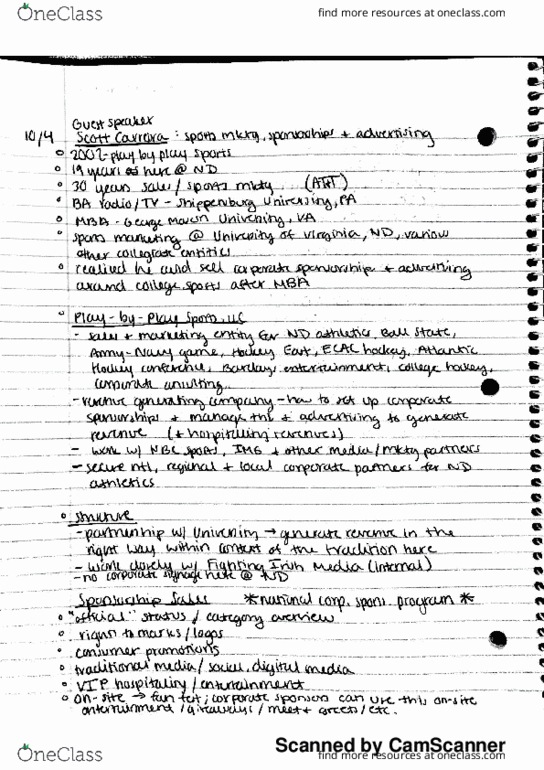 OneClass
find more resources at oneclass.com
Guest speaker
10/4 Scott Carrera: sports mktg, sponsorships + advertising
2002-play by play sports
19 years as here @ ND
30 years sales/sports mktg (AT&T)
BA radio/TV - Shippenburg University, PA
MBA - George Mason University, VA
sports marketing @ University of Virginia, ND, various
other collegiate entities
realized he could sell corporate sponsorship + advertising
around college sports after MBA
Play-by-Play Sports, LLC
- sales + marketing entity for ND athletics, Ball State,
Army-Navy game, Hockey East, ECAC hockey, Atlantic
Hockey conference, Barclays, entertainment, college hockey,
corporate consulting
- revenue generating company - how to set up corporate
sponsorships + manage this + advertising to generate
revenue (+ hospitality revenues)
- work w/ NBC sports, IMG + other media/mktg partners
- secure ntl, regional + local corporate partners for ND
athletics
Structure
- partnership w/ University → generate revenue in the
right way within context of the tradition here
- work closely w/ Fighting Irish Media (internal)
- no corporate signage here @ ND
Sponsorship Sales *national corp. spons. program *
"official" status/category overview
rights to marks/logos
consumer promotions
traditional media/social, digital media
VIP hospitality/entertainment
on-site → fan fest; corporate sponsors can use this on-site
entertainment/giveaways/meet + greets/etc.
Scanned by CamScanner
OneClass
find more resources at oneclass.com